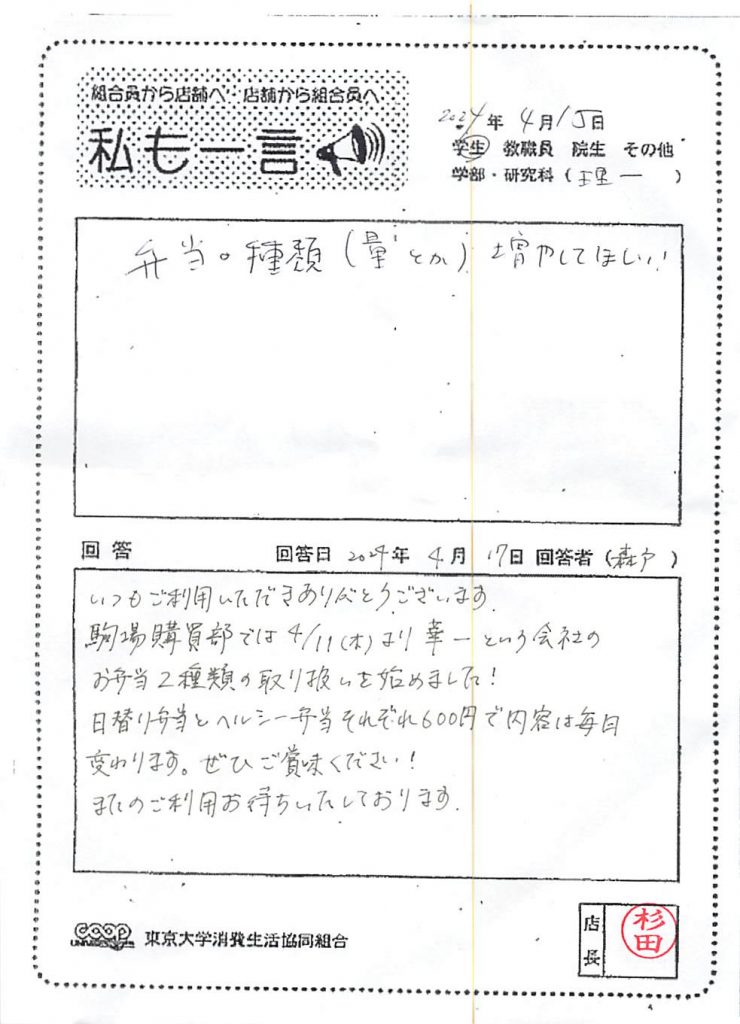 組合員から店舗へ 店舗から組合員へ
私も一言
2024年 4月15日
学生 教職員 院生 その他
学部・研究科(理一)
弁当の種類(量とか)増やしてほしい!
回答 回答日 2024年 4月 17日 回答者(森戸)
いつもご利用いただきありがとうございます。
駒場購買部では4/11(木)より幸一という会社の
お弁当2種類の取り扱いを始めました!
日替り弁当とヘルシー弁当それぞれ600円で内容は毎日
変わります。ぜひご賞味ください!
またのご利用お待ちいたしております。
coop
UNIVERSITIES
東京大学消費生活協同組合
店長
杉田